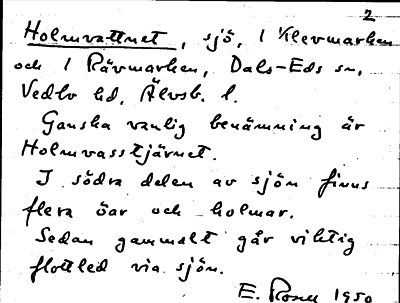 2
Holmvattnet, sjö, i Klevmarken
och i Rävmarken, Dals-Eds sn,
Vedbo hd, Älvsb. l.
Ganska vanlig benämning är
Holmvasstjärnet.
I södra delen av sjön finns
flera öar och holmar.
Sedan gammalt går viktig
flottled via sjön.
E. Rosell 1950